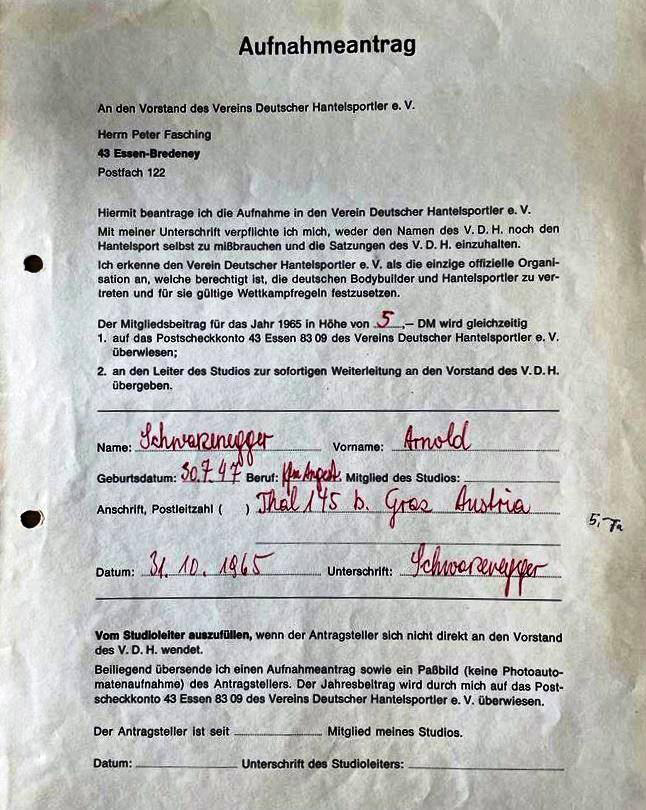 Aufnahmeantrag
An den Vorstand des Vereins Deutscher Hantelsportler e. V.
Herrn Peter Fasching
43 Essen-Bredeney
Postfach 122
Hiermit beantrage ich die Aufnahme in den Verein Deutscher Hantelsportler e. V.
Mit meiner Unterschrift verpflichte ich mich, weder den Namen des V. D. H. noch den
Hantelsport selbst zu mißbrauchen und die Satzungen des V. D. H. einzuhalten.
Ich erkenne den Verein Deutscher Hantelsportler e. V. als die einzige offizielle Organi-
sation an, welche berechtigt ist, die deutschen Bodybuilder und Hantelsportler zu ver-
treten und für sie gültige Wettkampfregeln festzusetzen.
Der Mitgliedsbeitrag für das Jahr 1965 in Höhe von 5,– DM wird gleichzeitig
1. auf das Postscheckkonto 43 Essen 83 09 des Vereins Deutscher Hantelsportler e. V.
überwiesen;
2. an den Leiter des Studios zur sofortigen Weiterleitung an den Vorstand des V. D. H.
übergeben.
Name: Schwarzenegger Vorname: Arnold
Geburtsdatum: 30.7.47 Beruf: Kfm Angest. Mitglied des Studios:
Anschrift, Postleitzahl ( ) Thal 145 b. Graz Austria
5,-
Datum: 31. 10. 1965 Unterschrift: Schwarzenegger
Vom Studioleiter auszufüllen, wenn der Antragsteller sich nicht direkt an den Vorstand
des V. D. H. wendet.
Beiliegend übersende ich einen Aufnahmeantrag sowie ein Paßbild (keine Photoauto-
matenaufnahme) des Antragstellers. Der Jahresbeitrag wird durch mich auf das Post-
scheckkonto 43 Essen 83 09 des Vereins Deutscher Hantelsportler e. V. überwiesen.
Der Antragsteller ist seit Mitglied meines Studios.
Datum: Unterschrift des Studioleiters: